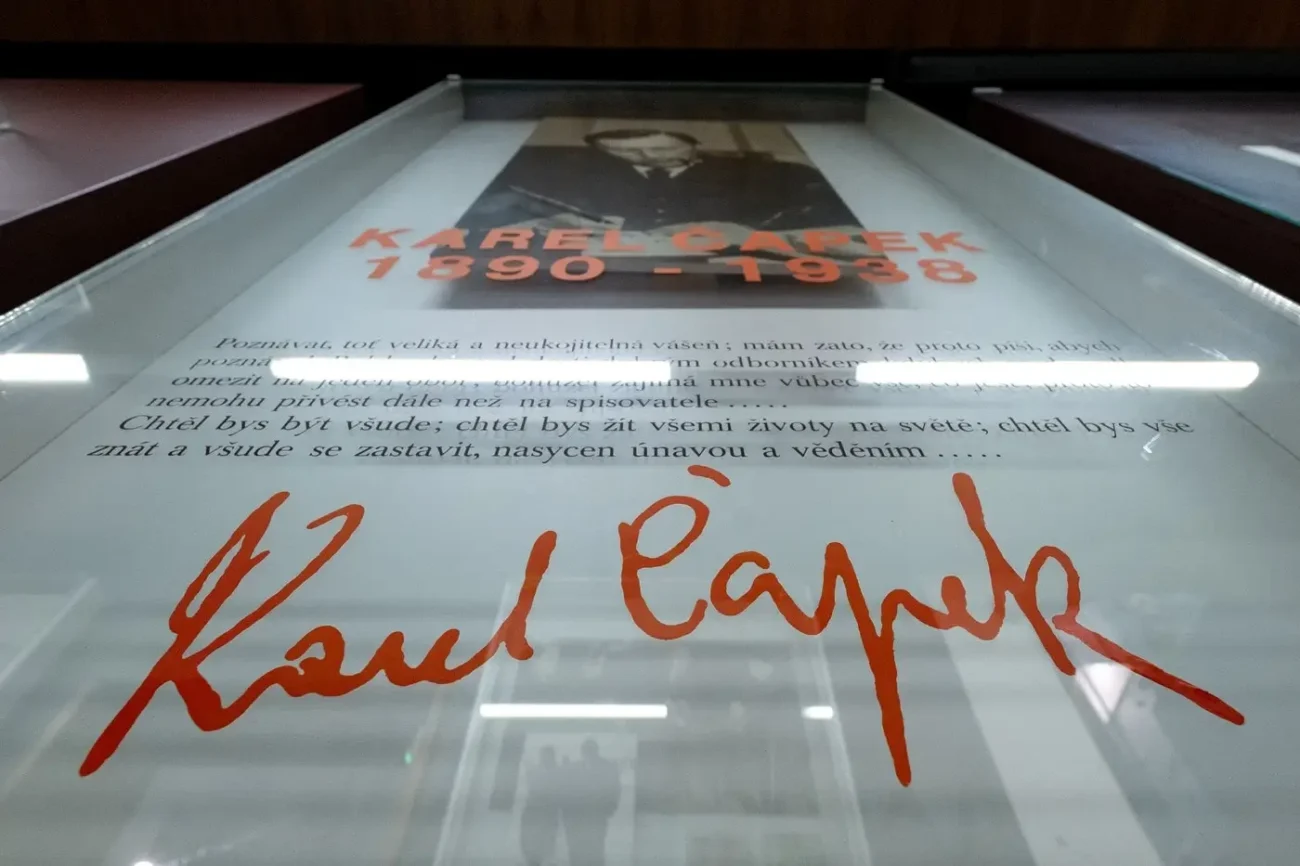 KAREL ČAPEK
1890 - 1938
Poznávat, toť veliká a neukojitelná vášeň; mám zato, že proto píši, abych
odborníkem
omezit na jeden obor; bohužel zajímá mne vůbec
nemohu přivést dále než na spisovatele .....
Chtěl bys být všude; chtěl bys žít všemi životy na světě; chtěl bys vše
znát a všude se zastavit, nasycen únavou a věděním .....
Karel Čapek